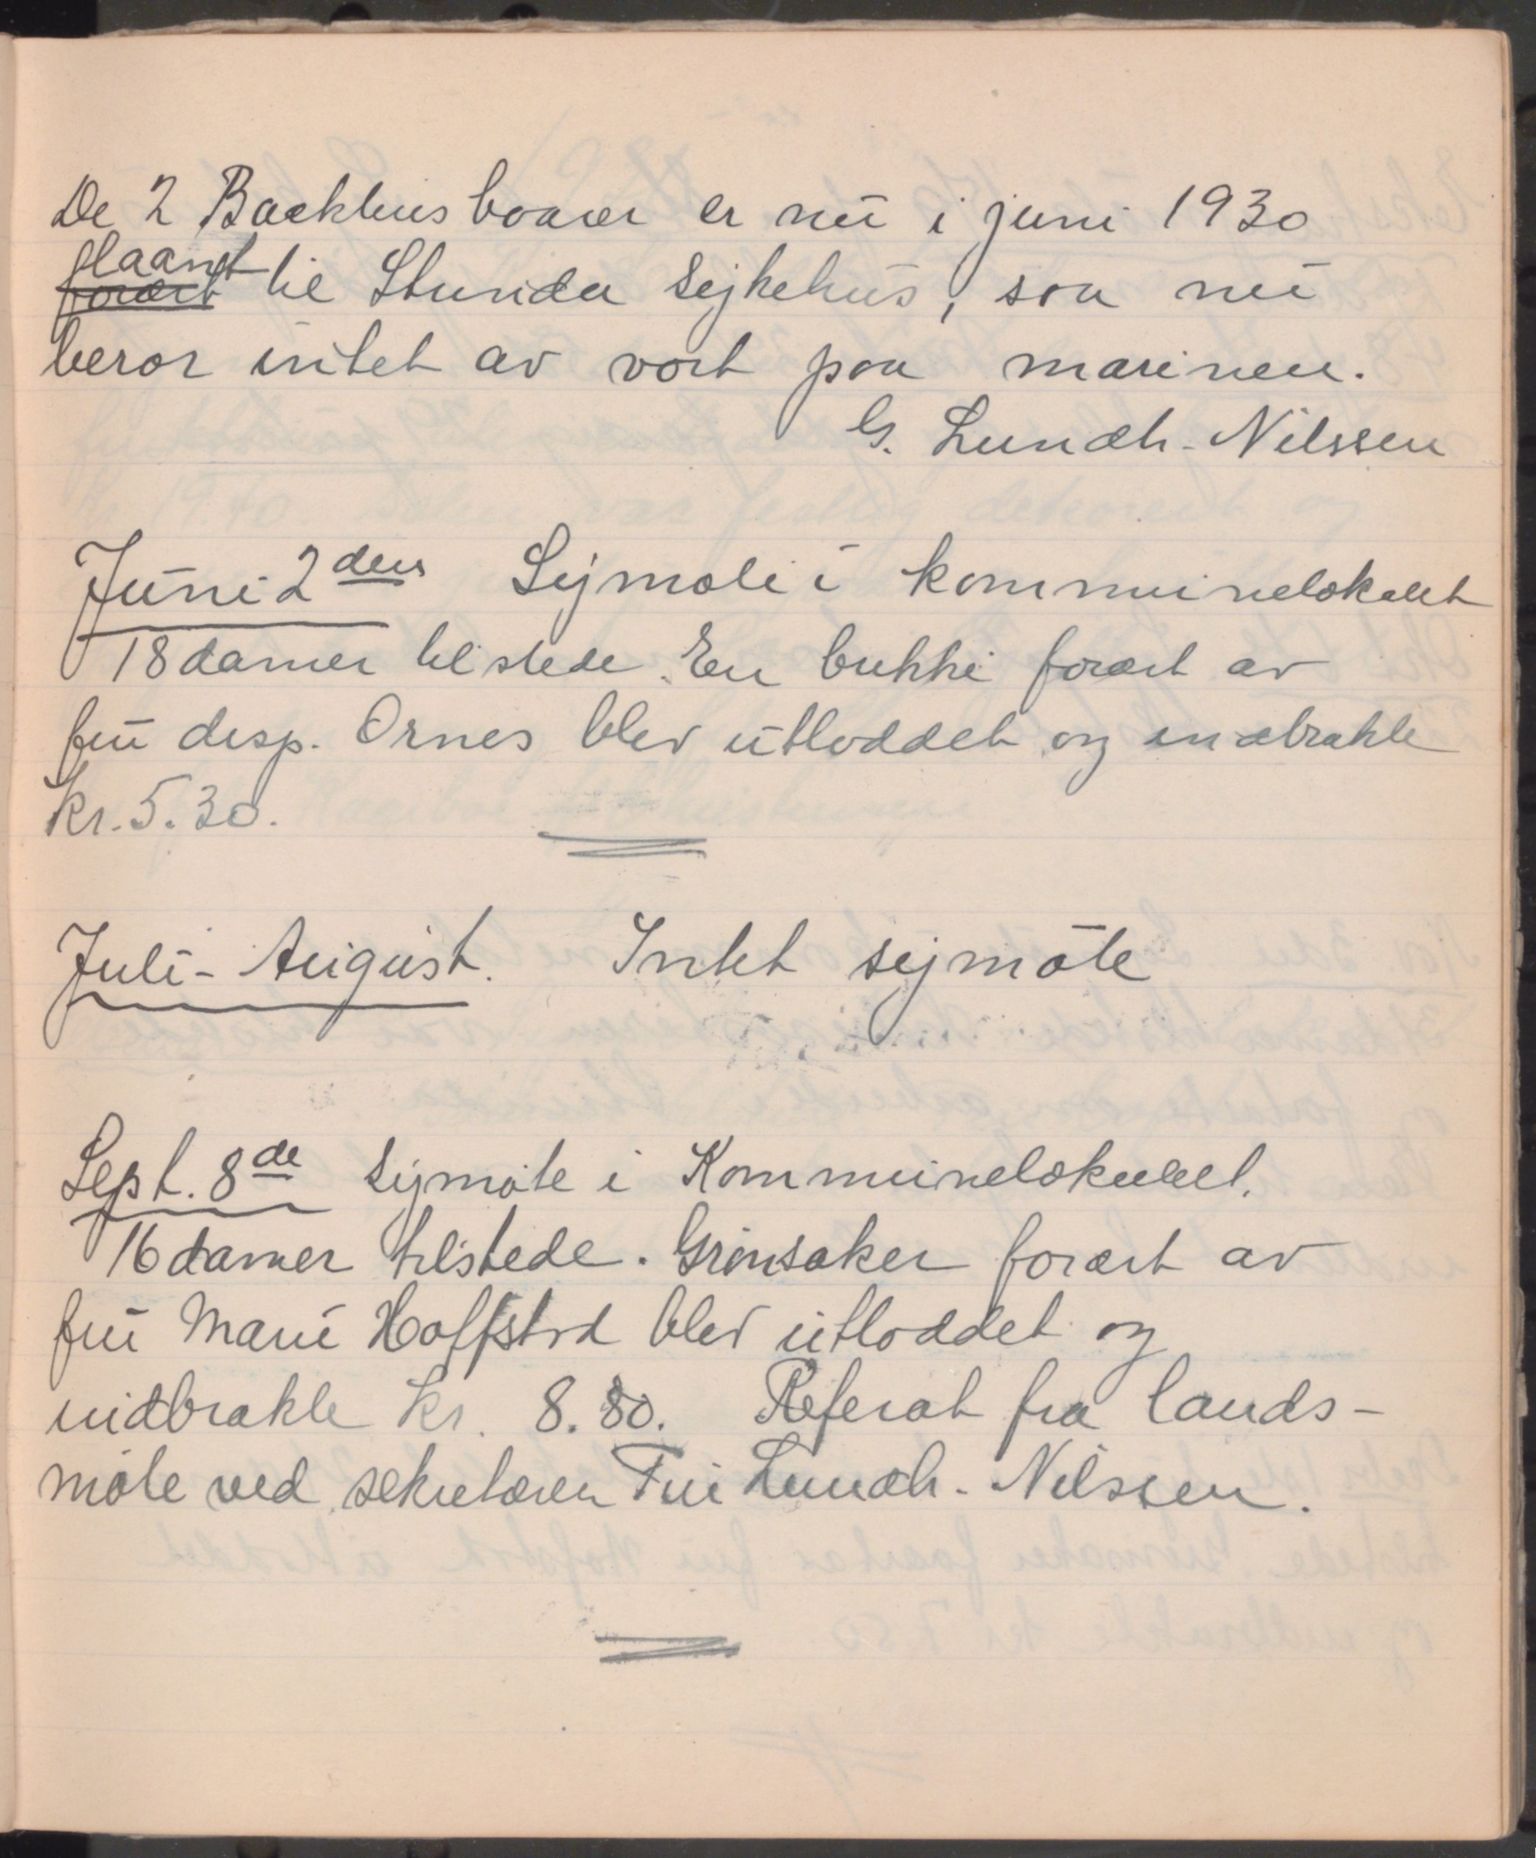 De 2 Backhusboarer er nu i juni 1930
utlaant
foræret til Skundu Sykehus, saa nu
beror intet av vort paa marinen.
G. Lundh-Nilssen
Juni 2den Symøte i kommunelokalet
18 damer tilstede. En bukke foræret av
fru disp. Ornes blev utloddet og indbrakte
kr. 5.30.
Juli - August. Intet symøte
Sept. 8de Symøte i Kommunelokalet.
16 damer tilstede. Grønsaker foræret av
fru Marie Hoffstad blev utloddet og
indbrakte kr. 8.80. Referat fra lands-
møte ved sekretæren Fru Lundh-Nilssen.